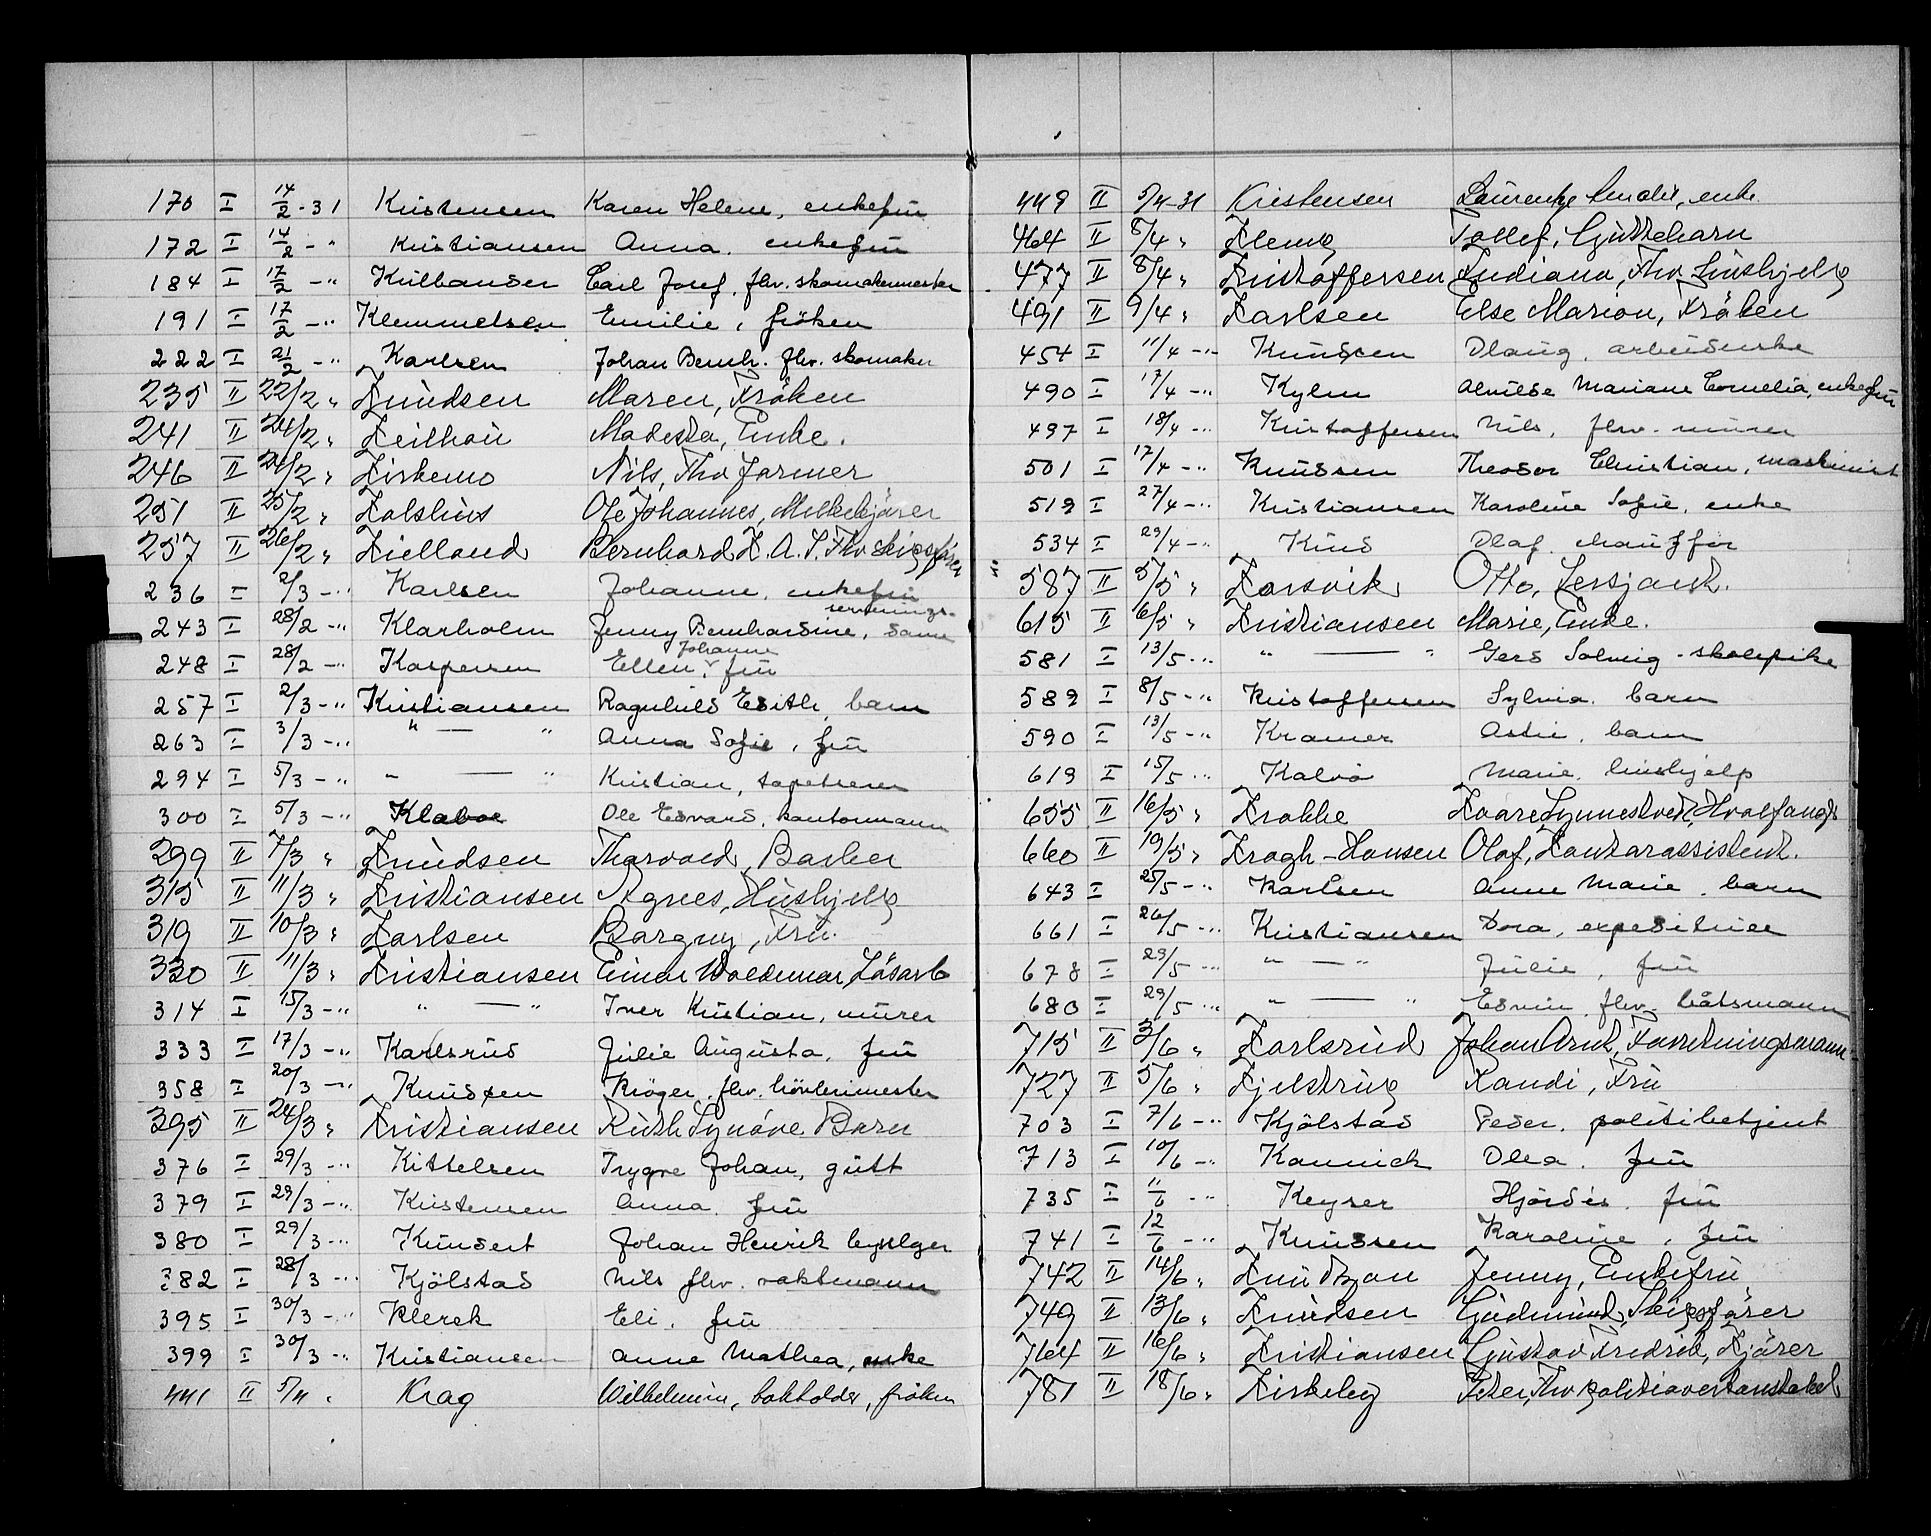 170 I 14/2-31 Kristensen Karen Helene, enkefru
172 I 14/2 -" Kristiansen Anna. enkefru
184 I 17/2 -" Carl Josef, fhv. skomakermester
191 I 17/2 -" Klemmetsen Emilie, fröken
222 I 21/2 -" Karlsen Johan Bernh. fhv. skomaker
235 II 22/2 " Knudsen Maren, Fröken
241 II 24/2 " Keilhau Modesta, Enke.
246 II 24/2 " Kirkemo Nils, Fhv Farmer
251 II 25/2 " Kolshus Ole Johannes, Melkekjörer
257 II 26/2 " Kielland Bernhard K. A. S. Fhv Skipsförer
236 I 2/3 -" Karlsen Johanne, enkefru
243 I 28/2 -" Klarholm Jenny Bernhardine, serverings- dame
248 I 28/2 -" Kaspersen Ellen Johanne, fru
257 I 2/3 -" Kristiansen Ragnhild Edith, barn
263 I 3/3 -" " — " Anna Sofie, fru
294 I 5/3 -" " — " Kristian, tapetserer
300 I 5/3 -" Klaboe Ole Edvard, kontormann
299 II 7/3 " Knudsen Thorvald, Barber
315 II 11/3 " Kristiansen Agnes, Hushjelp
319 II 10/3 " Karlsen Borgny, Fru.
330 II 11/3 " Kristiansen Einar Woldemar, Lösarb
314 I 15/3 -" " — " Iver Kristian, murer
333 I 17/3 -" Karlsrud Julie Augusta, fru
358 I 20/3 -" Knudsen Kröger, fhv.
395 II 24/3 " Kristiansen Ruth Synöve, Barn
376 I 29/3 -" Kittelsen Trygve Johan, gutt
379 I 29/3 -" Kristensen Anna, fru
380 I 29/3 -" Johan Henrik
382 I 28/3 -" Kjölstad Nils fhv. vaktmann
395 I 30/3 -" Klerck Eli, fru
399 I 30/3 -" Kristiansen Anne Mathea, enke
441 II 5/4 " Krag Wilhelmine, bokholder, fröken
449 II 5/4-31 Kristensen enke
464 II 8/4 " Klemp Tollef, Guttebarn
477 II 8/4 " Kristoffersen Indiana, Fhv Hushjelp
491 II 9/4 " Karlsen Else Marion, Fröken
454 I 11/4 -" Knudsen Olaug, arbeiderske
490 I 17/4 -" Kylm Mariane Cornelia, enkefru
497 I 18/4 -" Kristoffersen Nils, fhv. murer
501 I 17/4 -" Knudsen Theodor Christian, maskinist
519 I 27/4 -" Kristiansen Karoline Sofie, enke
534 I 29/4 -" Olaf, chauffør
587 II 5/5 " Korsvik Otto, Sersjant.
615 II 6/5 " Kristiansen Marie, Enke.
581 I 13/5 -" " — " Gerd Solveig - skolepike
589 I 8/5 -" Kristoffersen Sylvia, barn
590 I 13/5 -" Kramer barn
619 I 15/5 -" Kalvö Marie, hushjelp
655 II 16/5 " Krokke Hvalfanger
660 II 19/5 " Krogh-Hansen Olaf, Kontorassistent.
643 I 25/5 -" Karlsen Anne Marie, barn
661 I 26/5 -" Kristiansen Dora, expeditrise
678 I 29/5 -" " — " Julie, fru
680 I 29/5 -" " — " Edvin, fhv. båtsmann
715 II 3/6 " Karlsrud Johan Arnt, Forretningsmann
727 II 5/6 " Kjelstrup Randi, Fru
703 I 7/6 -" Kjölstad Peder, politibetjent
713 I 10/6 -" Kannick Olea, fru
735 I 11/6 -" Keyser Hjördis, fru
741 I 12/6 -" Knudsen Karoline, fru
742 II 14/6 " Knudtzon Jenny, Enkefru
749 II 13/6 " Knudsen Gudmund, Skipsförer
764 II 16/6 " Kristiansen Gustav Fredrik, Kjörer
781 II 18/6 " Kirkeby Peter, Fhv politioverkonstabel